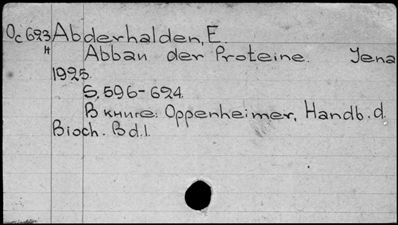 Oc 623 Abderhalden, E.
н Abbau der Proteine. Jena
1925.
S, 596-624
В книге: Oppenheimer, Handb. d.
Bioch. Bd. 1.